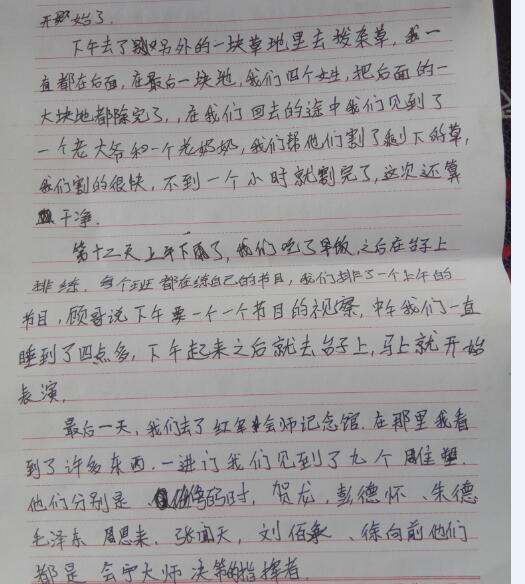 开始了.
下午去了另外的一块草地里去拔杂草,我一
直都在后面,在最后一块地,我们四个女生,把后面的一
大块地都除完了,,在我们回去的途中我们见到了
一个老大爷和一个老奶奶,我们帮他们割了剩下的草,
我们割的很快,不到一个小时就割完了,这次还算
干净.
第十二天上午下雨了,我们吃了早饭,之后在台子上
排练,每个班都在练自己的节目,我们排了一个上午的
节目,顾哥说下午要一个一个节目的视察,中午我们一直
睡到了四点多,下午起来之后就去台子上,马上就开始
表演.
最后一天,我们去了红军会师记念馆.在那里我看
到了许多东西.一进门我们见到了九个雕塑.
他们分别是 贺龙,彭德怀、朱德
毛泽东 周恩来.张闻天,刘伯承、徐向前他们
都是会宁大师决策的指挥者.